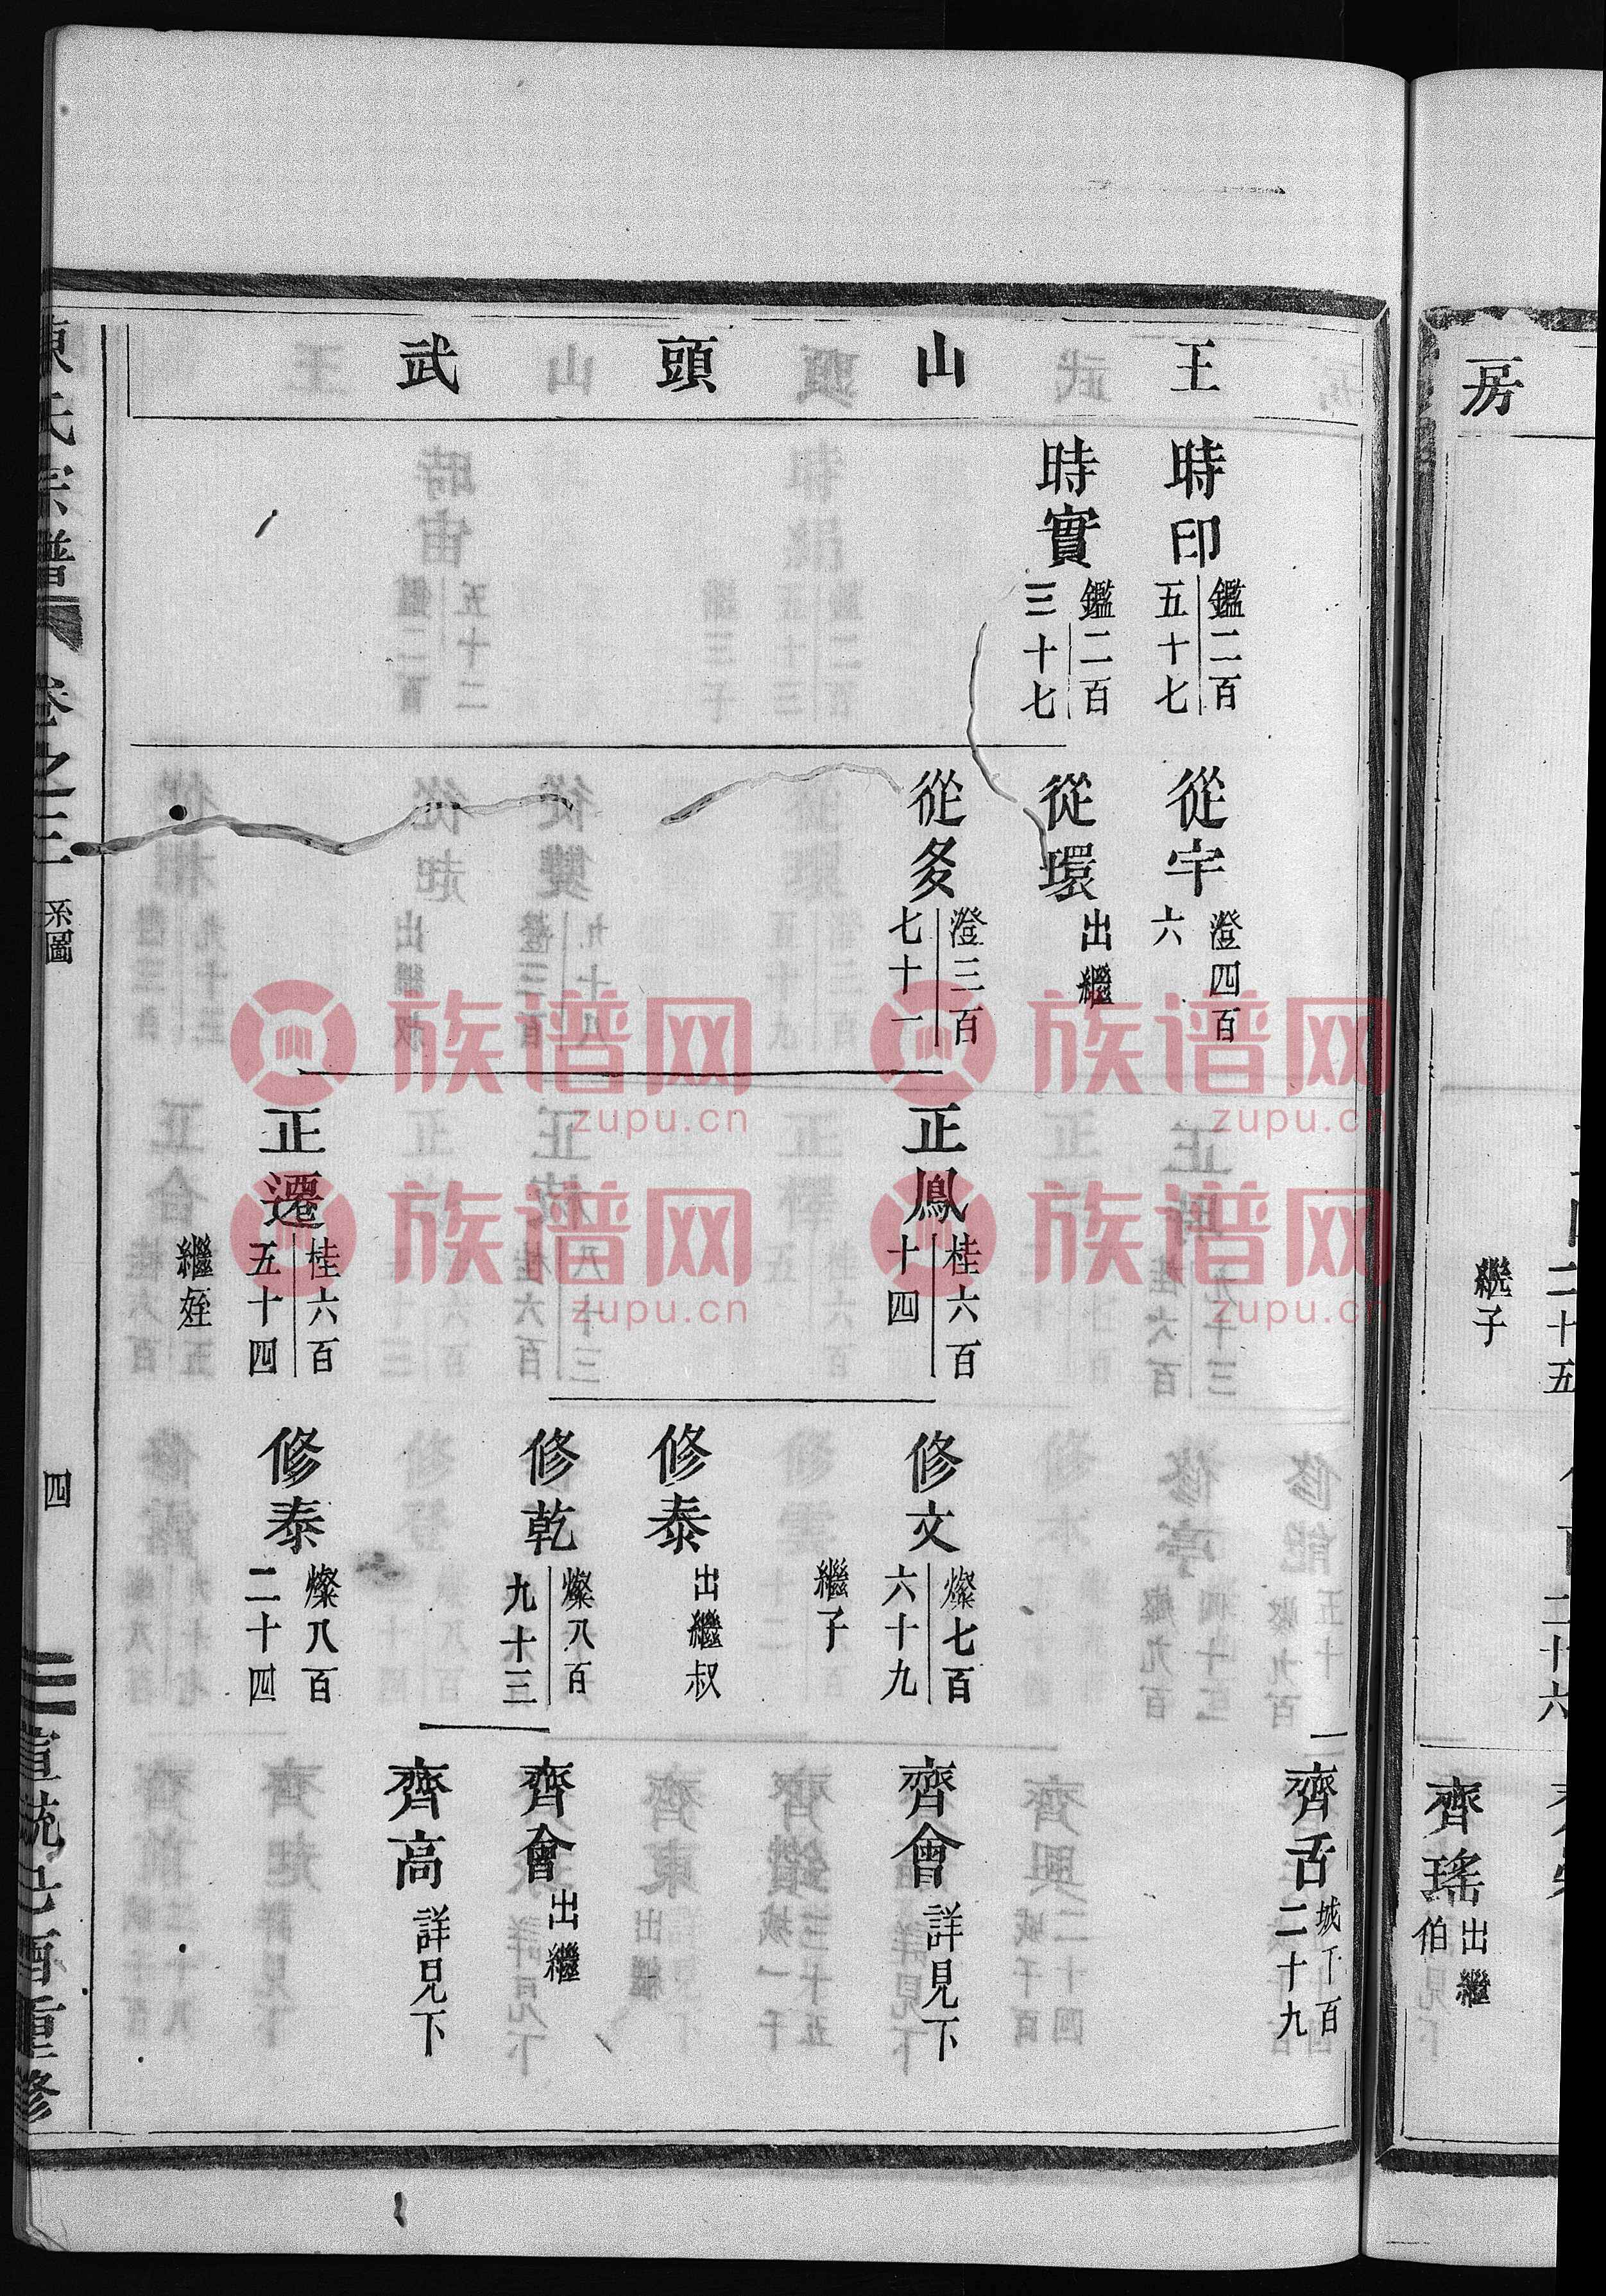 房
繼子
齊瑤 出繼
伯
王山頭武
時印 鑑二百
五十七
時實 鑑二百
三十七
從宇 澄四百
六
從環 出繼
從多 澄三百
七十一
正鳳 桂六百
十四
正遷 桂六百
五十四
繼姪
修文 燦七百
六十九
繼子
修泰 出繼叔
修乾 燦八百
九十三
修泰 燦八百
二十四
齊舌 城下百
二十九
齊會 詳見下
齊會 出繼
齊高 詳見下
陳氏宗譜 卷之三 系圖 四 宣統己酉重修
族谱网
zupu.cn
族谱网
zupu.cn
族谱网
zupu.cn
族谱网
zupu.cn